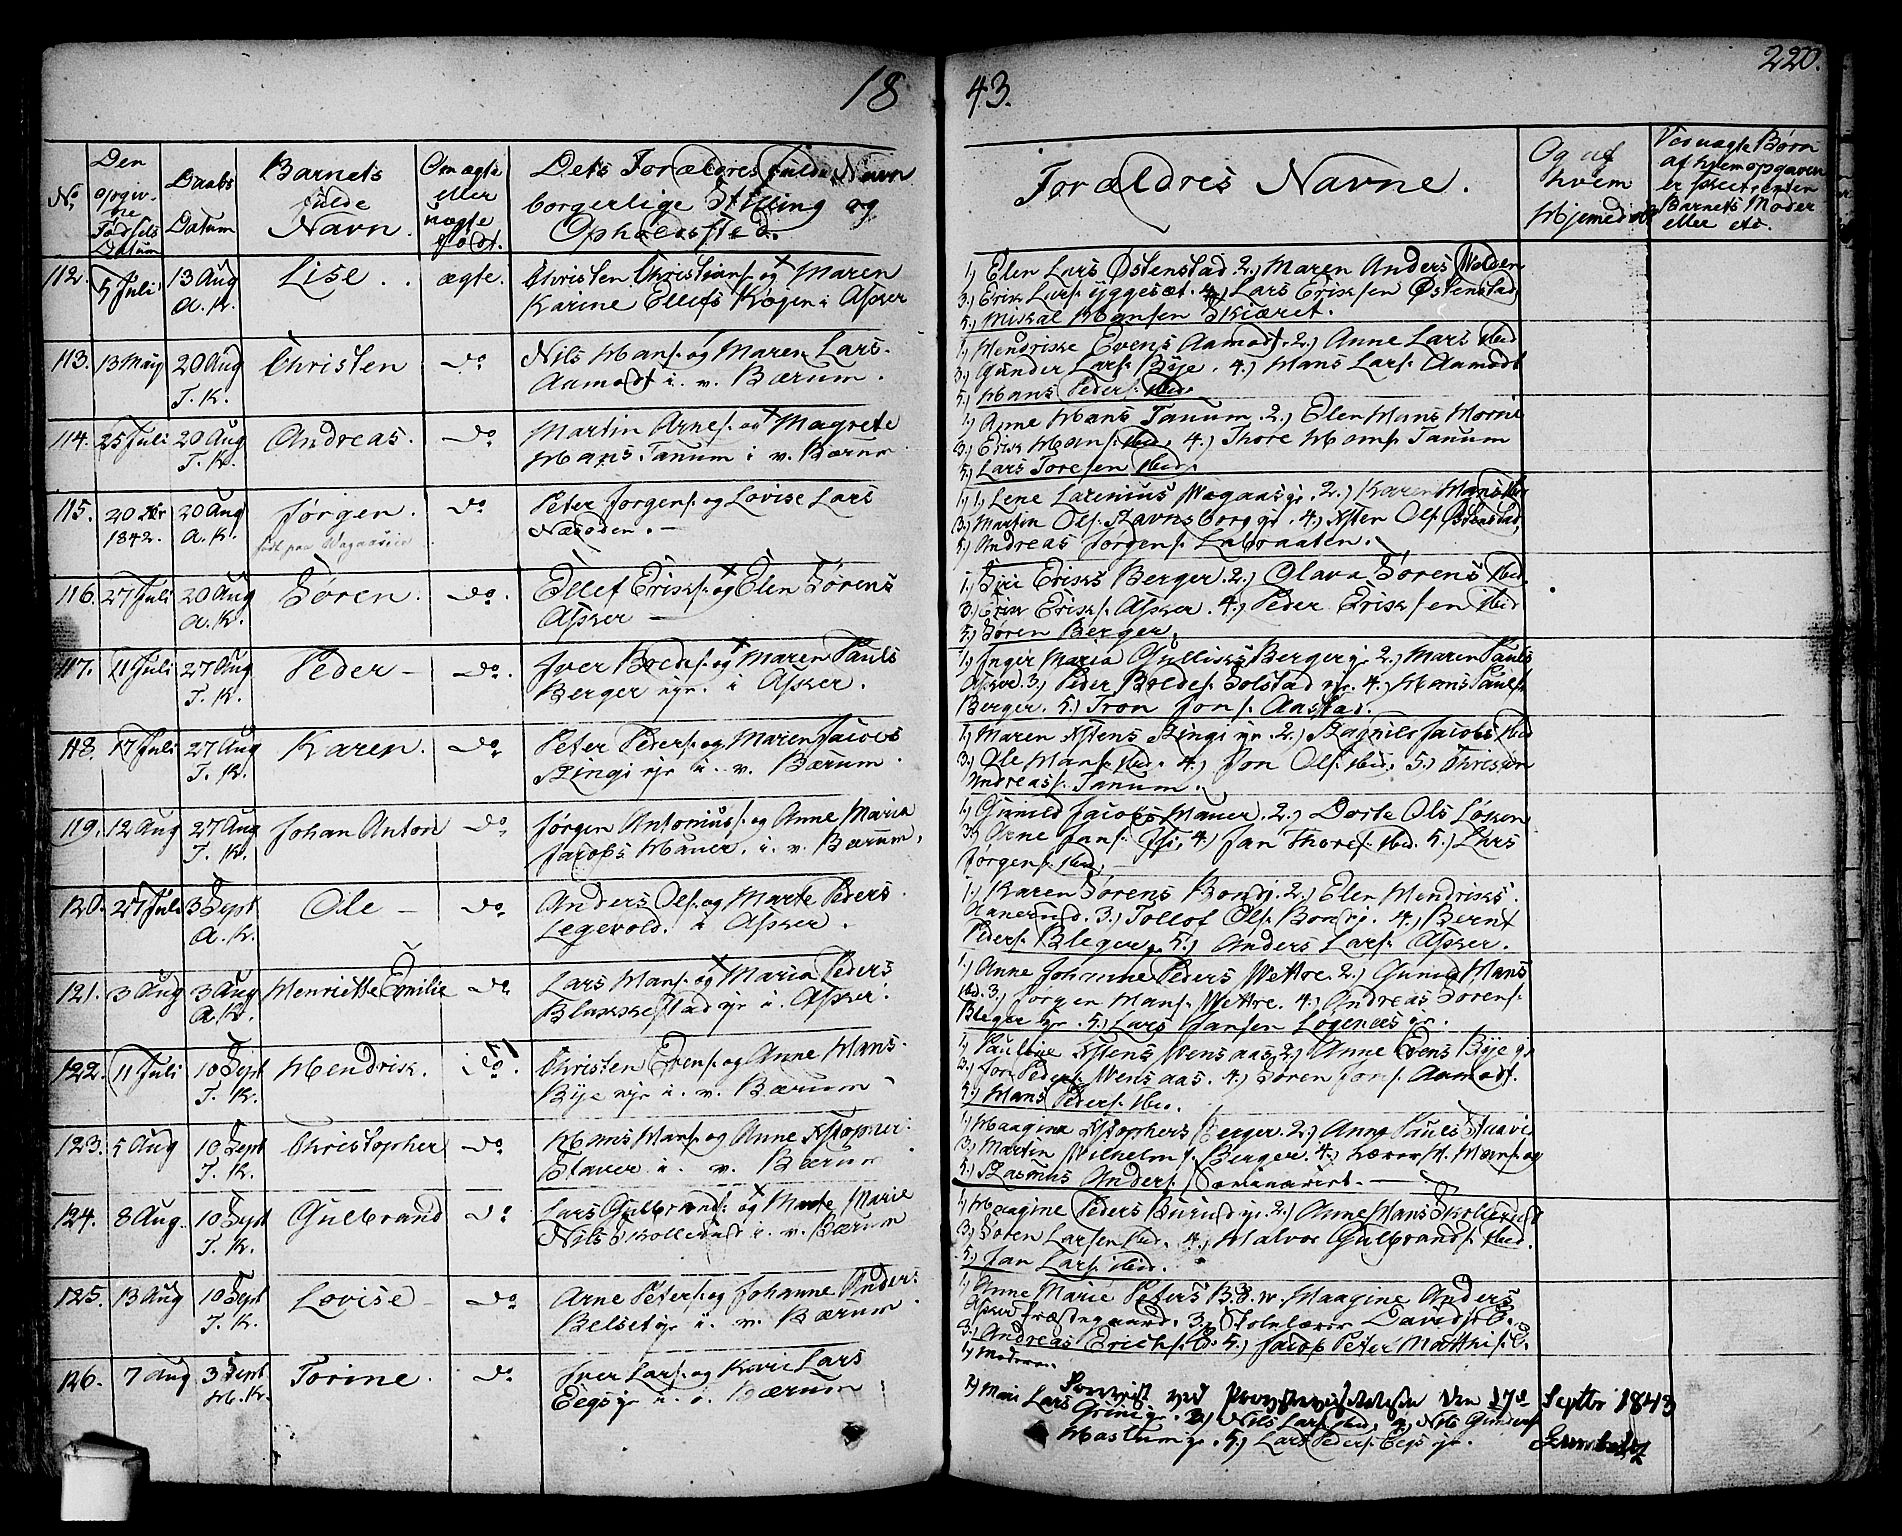 1843.
220.
No.
Den opgivne Fødsels Datum
Daabs Datum
Barnets fulde Navn.
Om ægte eller uægte født.
Dets Forældres fulde Navn
borgerlige Stilling og
Opholdssted.
Forældres Navne.
Og af hvem Hjemedøbt
Ved uægte Børn
Barnets Moder
eller etc.
112. 5 Juli 13 Aug A. K. Lise . . ægte. Christen Christians. og Maren
Karine Ellefs Kogen i Asker
1, Elen Lars Østenstad 2, Maren Anders
3, Erik Lars. 4, Lars Eriksen Østenstad,
5, Mikal Hansen Skiæret.
113. 13 May 20 Aug T. K. Christen do Nils Hans. og Maren Lars.
Aamodt i. v. Bærum.
1, Hendrikke Evens Aamodt. 2, Anne Lars ibid
3, Gunder Lars. Bye. 4, Hans Lars. Aamodt
5, Hans Peders. ibid.
114. 25 Juli 20 Aug T. K. Andreas. do Martin Arnes. og Magrete
Hans. Tanum i v. Bærum
1, Anne Hans Tanum. 2, Elen Hans Horni
3, Erik Hans. ibid. 4, Thore Hans. Tanum
5, Lars Toresen ibid.
115. 20 1842. 20 Aug A. K. Jørgen. do Peter Jørgens. og Lovise Lars
Næsoden. —
1, Lene Larenius 2, Karen Hans
3, Martin Ols. Ravnsborg gr. 4, Xsten Ols. Østenstad,
5, Andreas Jørgens. Labraaten.
116. 27 Juli 20 Aug A. K. Søren. do. Ellef Eriks. og Elen Sørens
Asker —
1, Siri Eriks Berger. 2, Olava Sørens ibid.
3, Erik Eriks. Asker. 4, Peder Eriksen ibid
5, Søren Berger.
117. 11 Juli 27 Aug T. K. Peder — do. Iver Bredes. og Maren Pauls
Berger i Asker.
1, Inger Maria Gulliks Berger gr 2, Maren Pauls
Asker. 3, Peder Bredes. Solstad 4, Hans Pauls.
Berger. 5, Tron Jons. Aastad.
118. 17 Juli 27 Aug T. K. Karen. do. Peter Peders. og Maren Jacobs
Ringi i. v. Bærum.
1, Maren Xstens Ringi 2, Ragnild Jacobs ibid
3, Ole Hans. ibid. 4, Jon Ols. ibid. 5, Christen
Andreas. Tanum.
119. 12 Aug 27 Aug T. K. Johan Anton do. Jørgen Antonius. og Anne Maria
Jacobs Hauer. i. v. Bærum.
1, Gunild Jacobs Hauer. 2, Dorte Ols Løken
3, Arne Jans. 4, Jan Thores. ibid. 5, Lars
Jørgens. ibid.
120. 27 Juli 3 Sept A. K. Ole — do. Anders Ols. og Marte Peders
Legevold. i Asker.
1, Karen Sørens Bondi. 2, Elen Hendriks.
Aanerud. 3, Tollof Ols. Bondi. 4, Bernt
Peders. Bleger. 5, Anders Lars. Asker.
121. 3 Aug 3 Aug A. K. Henriette Emilie do. Lars Hans. og Maria Peders
Blakkestad i. Asker.
1, Anne Johanne Peders Wettre. 2, Gunild Hans
ibid. 3, Jørgen Hans. Wettre. 4, Andreas Sørens.
Bleger 5, Lars Jansen Løgenæs
122. 11 Juli 10 Sept T. K. Hendrik. do. Christen Evens. og Anne Hans.
Bye i. v. Bærum
1, Pauline Xstens Wensaas. 2, Anne Evens Bye
3, Jon Peders. Wensaas. 4, Søren Jons. Aamodt.
5, Hans Peders. ibid.
123. 5 Aug 10 Sept T. K. Christopher do. Hans Hans. og Anne Xstopher.
Staver i. v. Bærum
1, Haagine Xstophers Berger. 2, Anne Pauls
3, Martin Wilhelm. Berger. 4, Lærer H. Hans. og
5, Rasmus Anders.
124. 8 Aug. 10 Sept T. K. Gulbrand do Lars Gulbrands. og Marte Marie
Nils Skollerud i. v. Bærum
1, Haagine Peders Burud 2, Anne Hans Skollerud
3, Søren Larsen ibid. 4, Halvor Gulbrands. ibid.
5, Jan Lars. ibid.
125. 13 Aug 10 Sept T. K. Lovise — do. Arne Peters. og Johanne Anders.
Belset i. v. Bærum.
1, Anne Marie Peters Haagine Anders
Asker Præstegaard. 3, Skolelærer Davids.
Andreas Erichs. 5, Jacob Peter
126. 7 Aug 3 Sept H. K. Torine. do. Iver Lars. og Kari Lars
Eegs i. Bærum
1, Moderen.
2, Mari Lars Grini 3, Nils Lars. ibid. 4, Nils Gunders.
Haslum 5, Lars Peders. Eegs
Septbr 1843